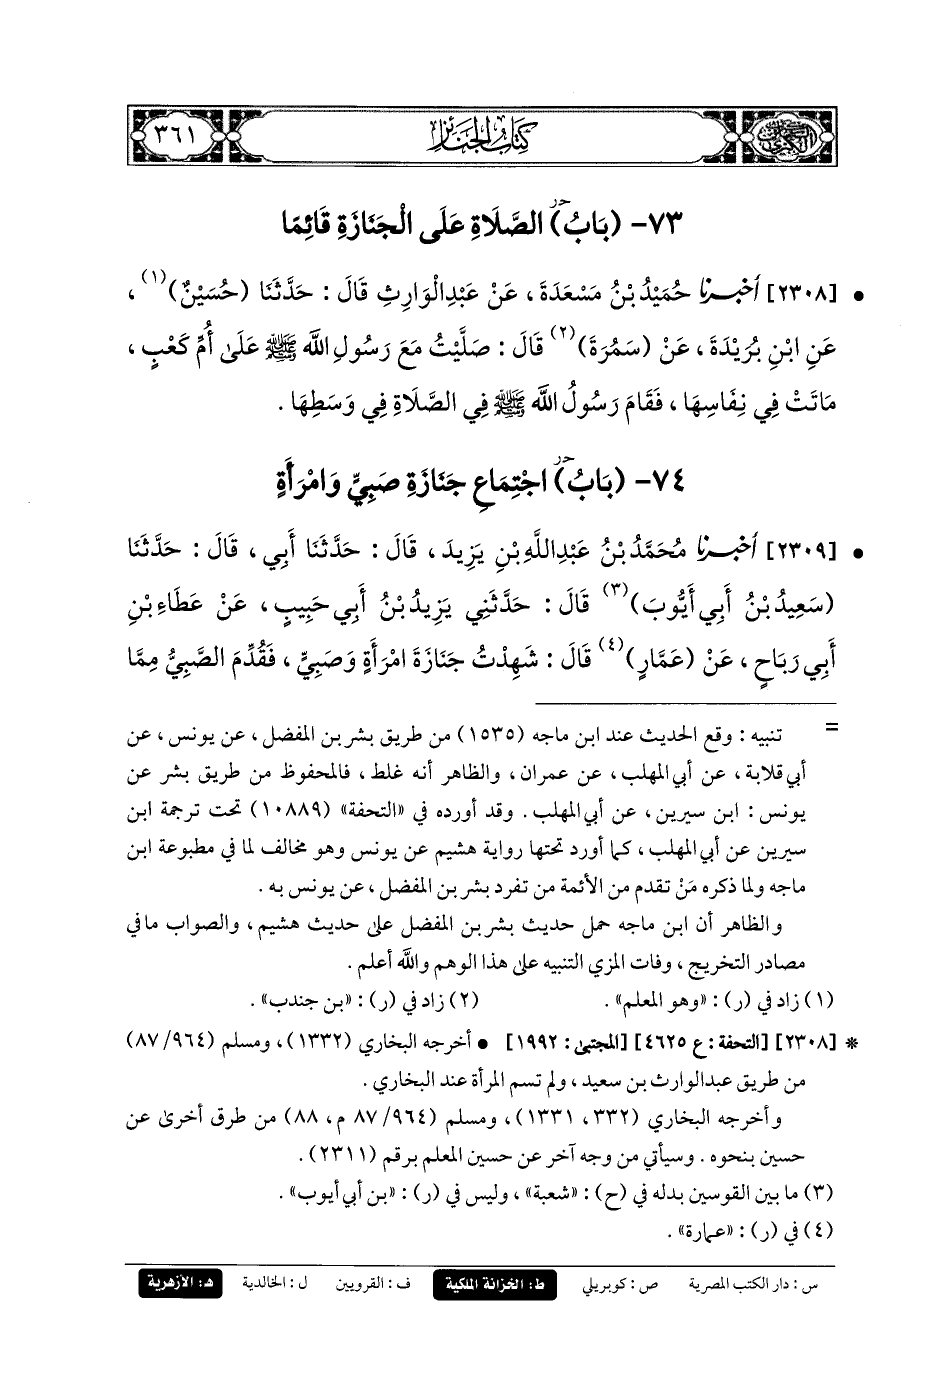 السنن الكبرى
كتاب الجنائز
٣٦١
٧٣- (بَابُ) الصَّلَاةِ عَلَى الْجَنَازَةِ قَائِمًا
• [٢٣٠٨] أَخْبَرَنَا حُمَيْدُ بْنُ مَسْعَدَةَ ، عَنْ عَبْدِ الْوَارِثِ قَالَ : حَدَّثَنَا (حُسَيْنٌ)(١) ،
عَنِ ابْنِ بُرَيْدَةَ ، عَنْ (سَمُرَةَ)(٢) قَالَ : صَلَّيْتُ مَعَ رَسُولِ اللَّهِ ﷺ عَلَى أُمِّ كَعْبٍ ،
مَاتَتْ فِي نِفَاسِهَا ، فَقَامَ رَسُولُ اللَّهِ ﷺ فِي الصَّلَاةِ فِي وَسَطِهَا .
٧٤- (بَابُ) اجْتِمَاعِ جَنَازَةِ صَبِيٍّ وَامْرَأَةٍ
• [٢٣٠٩] أَخْبَرَنَا مُحَمَّدُ بْنُ عَبْدِ اللَّهِ بْنِ يَزِيدَ ، قَالَ : حَدَّثَنَا أَبِي ، قَالَ : حَدَّثَنَا
(سَعِيدُ بْنُ أَبِي أَيُّوبَ)(٣) قَالَ : حَدَّثَنِي يَزِيدُ بْنُ أَبِي حَبِيبٍ ، عَنْ عَطَاءِ بْنِ
أَبِي رَبَاحٍ ، عَنْ (عَمَّارٍ)(٤) قَالَ : شَهِدْتُ جَنَازَةَ امْرَأَةٍ وَصَبِيٍّ ، فَقُدِّمَ الصَّبِيُّ مِمَّا
= تنبيه : وقع الحديث عند ابن ماجه (١٥٣٥) من طريق بشر بن المفضل ، عن يونس ، عن
أبي قلابة ، عن أبي المهلب ، عن عمران ، والظاهر أنه غلط ، فالمحفوظ من طريق بشر عن
يونس : ابن سيرين ، عن أبي المهلب . وقد أورده في «التحفة» (١٠٨٨٩) تحت ترجمة ابن
سيرين عن أبي المهلب ، كما أورد تحتها رواية هشيم عن يونس وهو مخالف لما في مطبوعة ابن
ماجه ولما ذكره مَنْ تقدم من الأئمة من تفرد بشر بن المفضل ، عن يونس به .
والظاهر أن ابن ماجه حمل حديث بشر بن المفضل على حديث هشيم ، والصواب ما في
مصادر التخريج ، وفات المزي التنبيه على هذا الوهم والله أعلم .
(١) زاد في (ر) : «وهو المعلم» . (٢) زاد في (ر) : «بن جندب» .
* [٢٣٠٨] [التحفة : ع ٤٦٢٥] [المجتبى : ١٩٩٢] • أخرجه البخاري (١٣٣٢) ، ومسلم (٨٧/٩٦٤)
من طريق عبدالوارث بن سعيد ، ولم تسم المرأة عند البخاري .
وأخرجه البخاري (٣٣٢ ، ١٣٣١) ، ومسلم (٨٧/٩٦٤ م ، ٨٨) من طرق أخرى عن
حسين بنحوه . وسيأتي من وجه آخر عن حسين المعلم برقم (٢٣١١) .
(٣) ما بين القوسين بدله في (ح) : «شعبة» ، وليس في (ر) : «بن أبي أيوب» .
(٤) في (ر) : «عمارة» .
س : دار الكتب المصرية ص : كوبريلي ط : الخزانة الملكية ف : القرويين ل : الخالدية هـ : الأزهرية